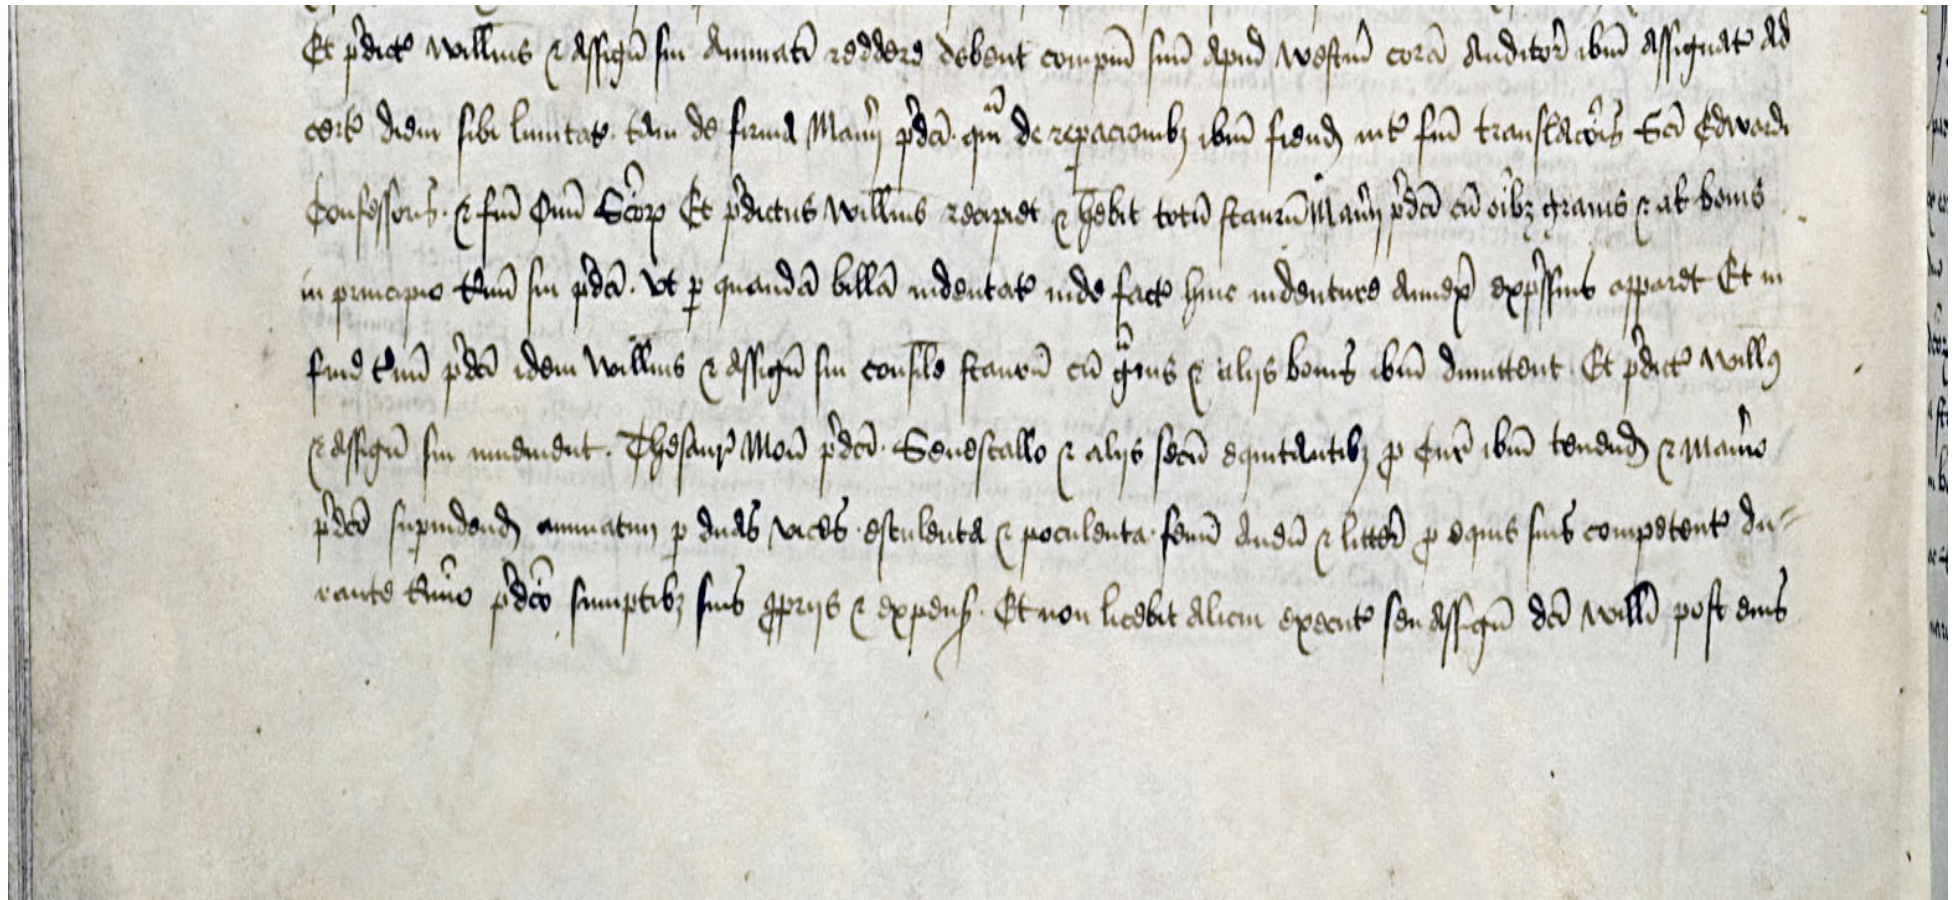 Et p̾dict᷒ Willm̄s ⁊ assigñ sui annuati᷑ reddere debent compm̄ suū apud Westm̄ corā Auditor̄ ibm̄ assignat᷒ ad
cert᷒ diem sibi limitat᷒ tam de firma Man̄ij p̾dc̄i qm̄ de rep̱acionibꝫ ibm̄ fiend̄ int᷒ fm̄ translac̄ois Sc̄i Edwardi
Confessoris ⁊ fm̄ Om̄ Sc̄oꝝ Et p̾dictus Willm̄s recipiet ⁊ hēbit totū staurū Man̄ij p̾dc̄i cū om̄ibꝫ granis ⁊ al̄ bonis
in principio t̄mi sui p̾dc̄i. Vt ꝑ quandā billā indentat᷒ inde fact᷒ huic indenture annex̄ exp̾ssius apparet Et in
fine t̄mi p̾dc̄i idem Willm̄s ⁊ assigñ sui consil̄e staurū cū g̾nis ⁊ alijs bonis ibm̄ dimittent. Et p̾dict᷒ Willꝰ
⁊ assigñ sui invenient. Thesaur̄ Mon̄ p̾dc̄i. Senescallo ⁊ alijs secū equitantibꝫ ꝓ Cur̄ ibm̄ tenend̄ ⁊ Man̄io
p̾dc̄o sup̱vidend̄ annuatim ꝑ duas vices esculenta ⁊ poculenta fenū auen̄ ⁊ litter̄ ꝓ equis suis competent᷒ du⸗
rante t̄mio p̾dc̄o sumptibꝫ suis ꝓprijs ⁊ expens̄. Et non licebit alicui execut᷒ seu assigñ dc̄i Willi᷑ post eius